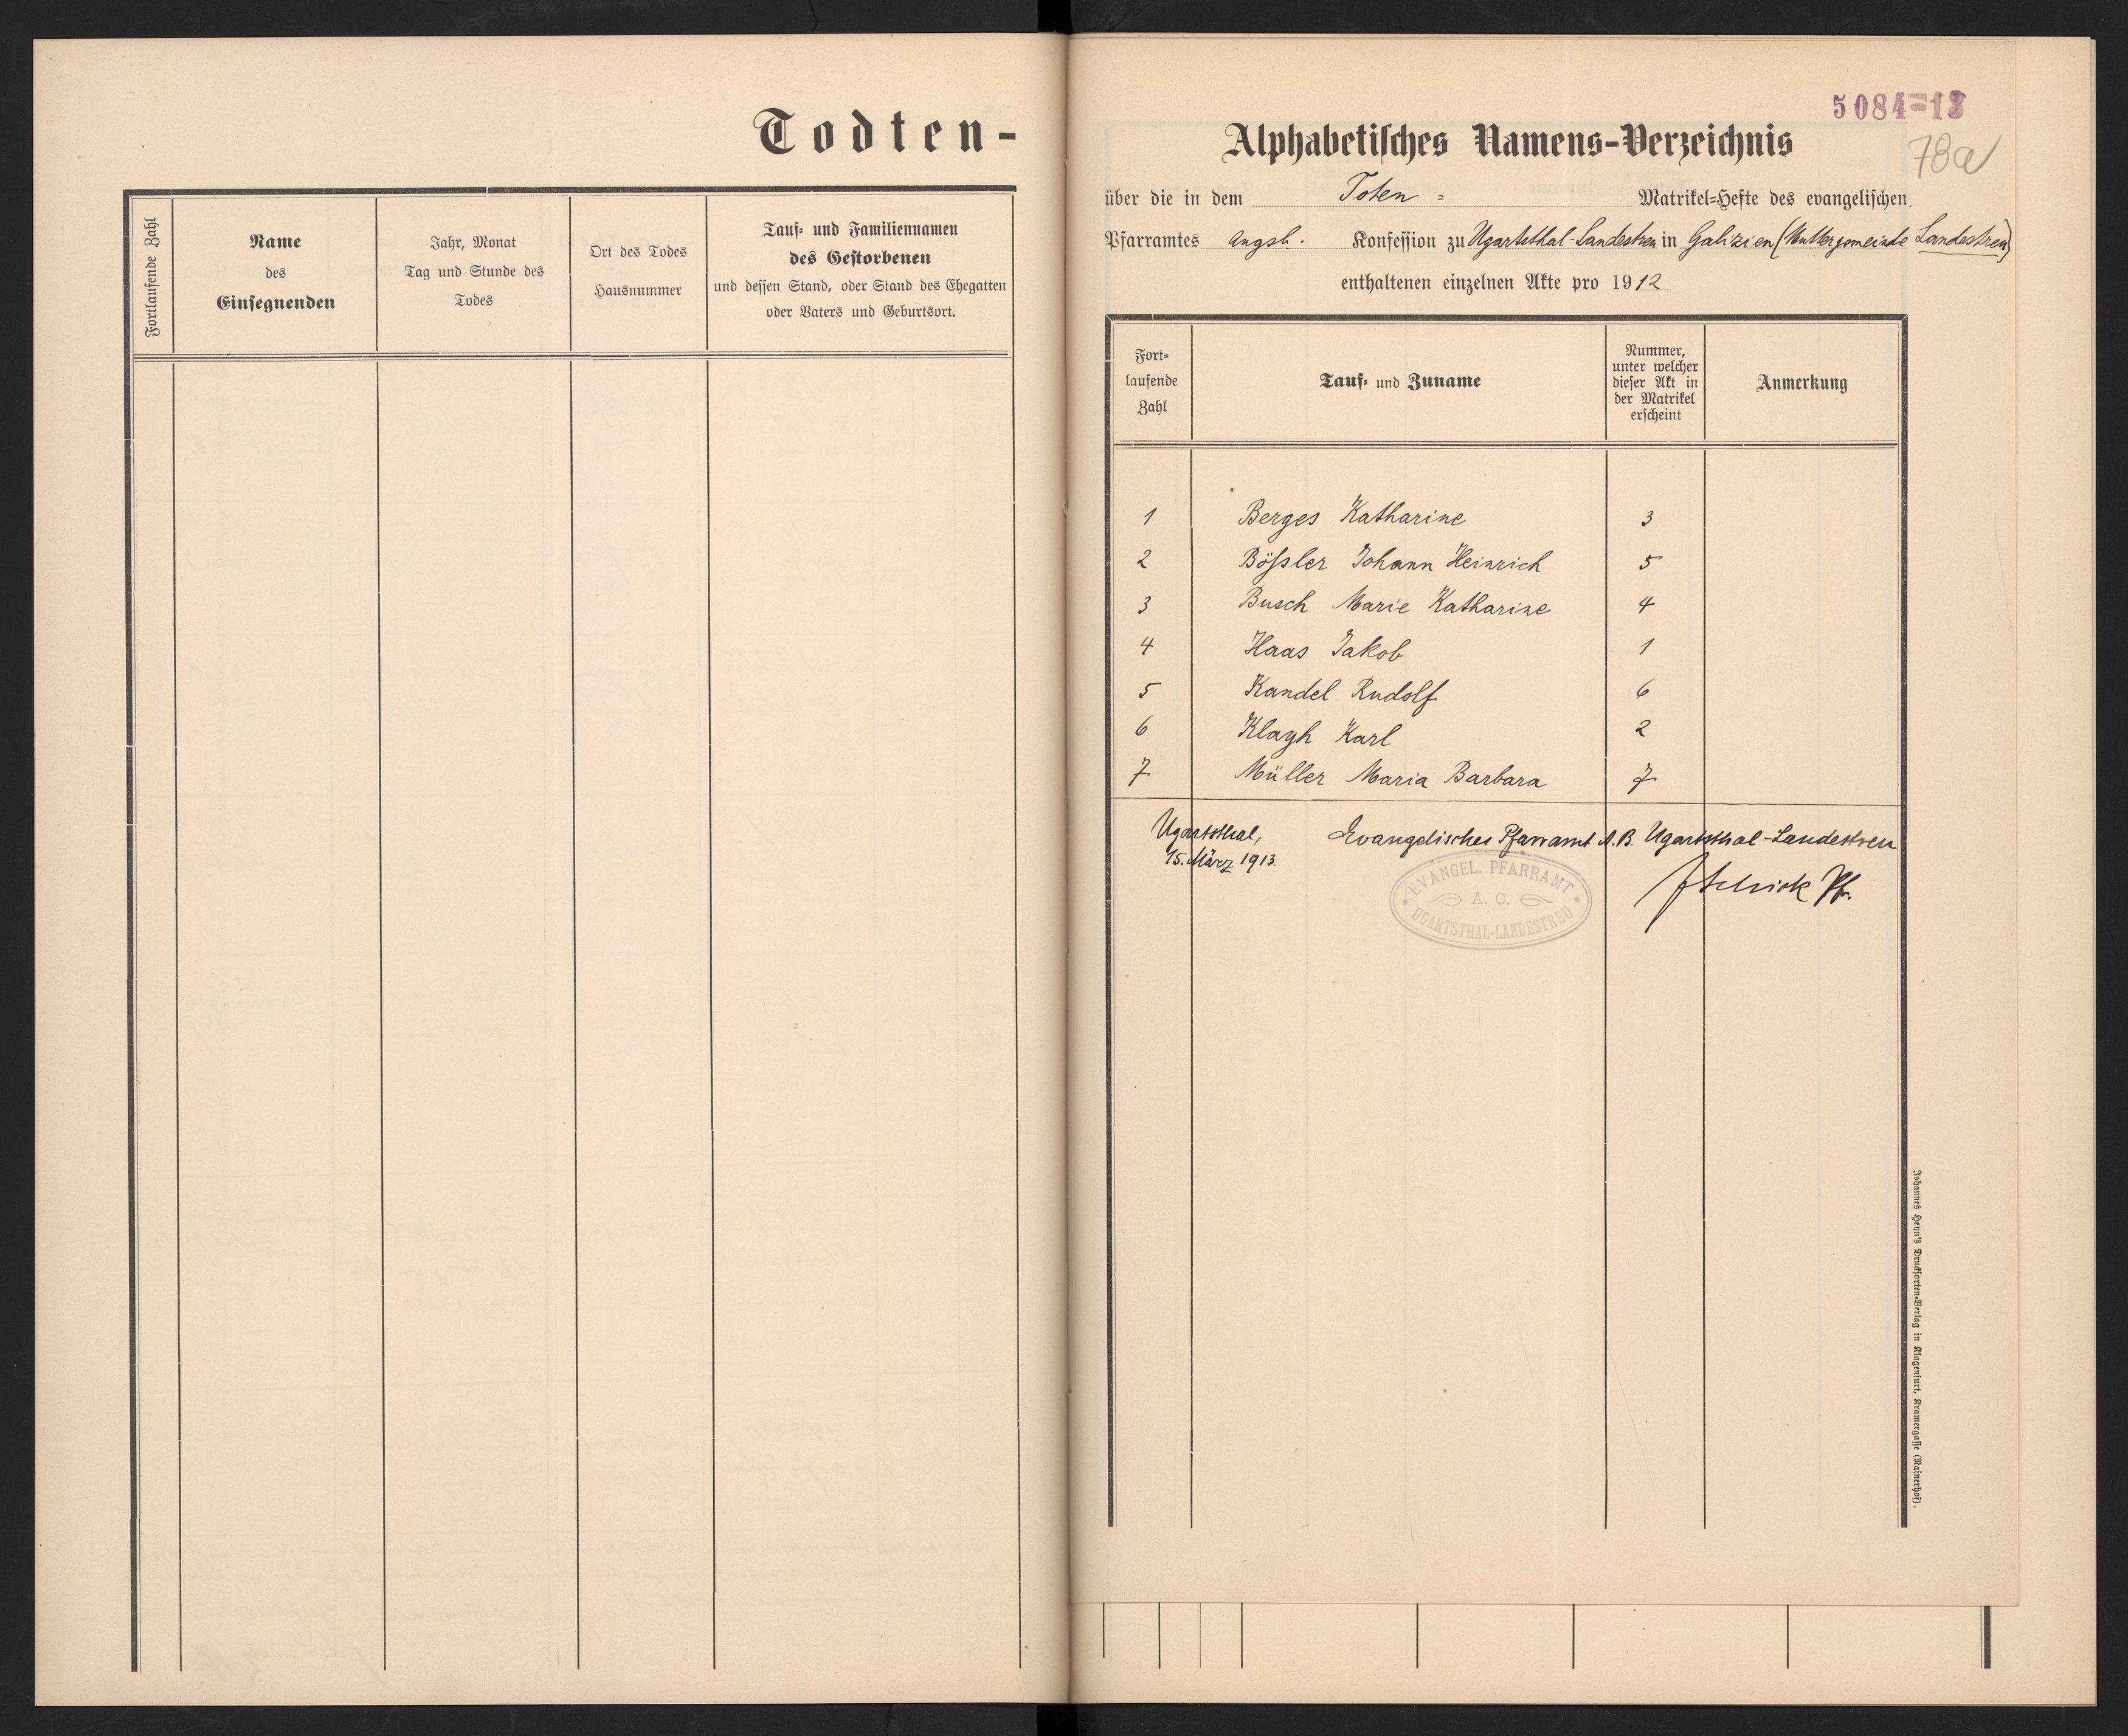 Todten-
Fortlaufende Zahl
Name
des
Einsegnenden
Jahr, Monat
Tag und Stunde des
Todes
Ort des Todes
Hausnummer
Tauf- und Familiennamen
des Gestorbenen
und dessen Stand, oder Stand des Ehegatten
oder Vaters und Geburtsort.
5084=13
78a
Alphabetisches Namens-Verzeichnis
über die in dem Toten = Matrikel-Hefte des evangelischen
Pfarramtes Augsb. Konfession zu Ugartsthal-Landestreu in Galizien (Muttergemeinde Landestreu)
enthaltenen einzelnen Akte pro 1912
Fort-
laufende
Zahl
Tauf- und Zuname
Nummer,
unter welcher
dieser Akt in
der Matrikel
erscheint
Anmerkung
1 Berges Katharine 3
2 Bößler Johann Heinrich 5
3 Busch Marie Katharine 4
4 Haas Jakob 1
5 Kandel Rudolf 6
6 Klagh Karl 2
7 Müller Maria Barbara 7
Ugartsthal, Evangelisches Pfarramt A.B. Ugartsthal-Landestreu
15. März 1913.
Pfr.
EVANGEL. PFARRAMT
A. C.
UGARTSTHAL-LANDESTREU
Johannes Heyn's Drucksorten-Verlag in Klagenfurt, Kramergasse (Rainerhof).